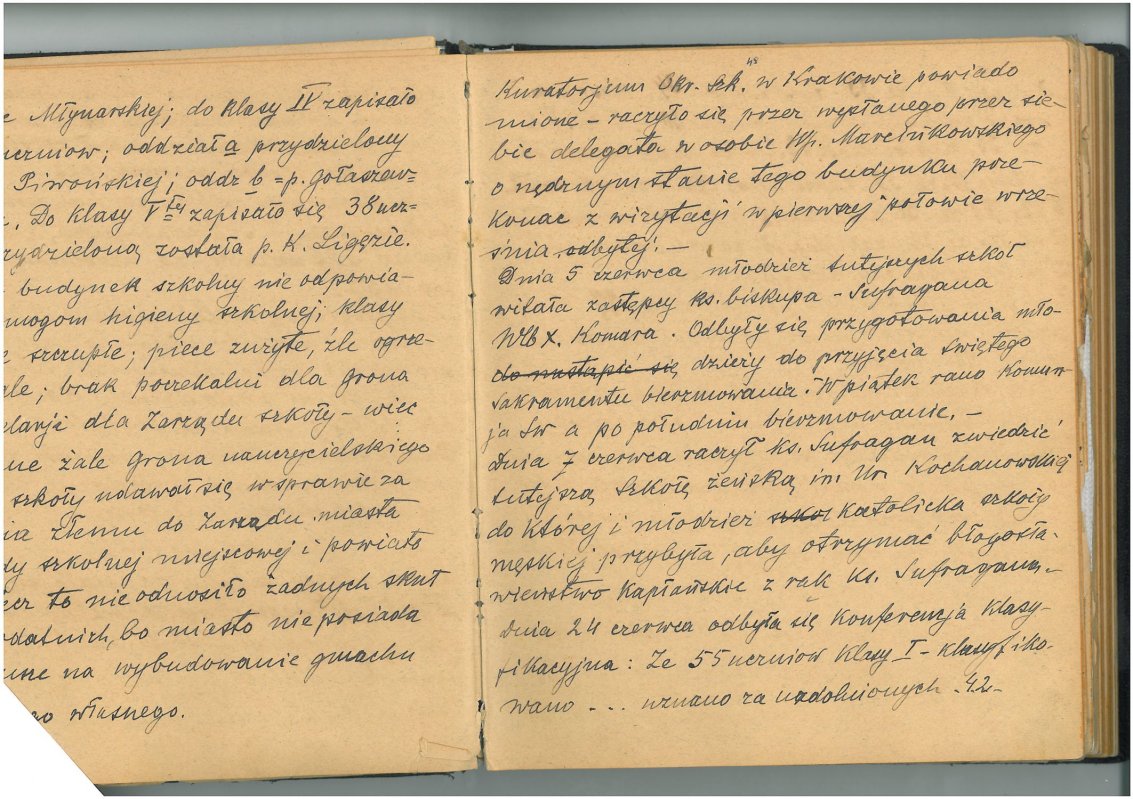 e Młynarskiej; do klasy IV zapisało
uczniów; oddział a przydzielony
Piwońskiej; oddz b = p. Gołaszew=
. Do klasy V tej zapisało się 38 ucz=
zydzieloną została p. K. Ligęzie.
budynek szkolny nie odpowia-
mogom higieny szkolnej; klasy
e szczupłe; piece zużyte, źle ogrze-
ale; brak poczekalni dla grona
elarji dla Zarządu szkoły - więc
ne żale grona nauczycielskiego
szkoły udawał się w sprawie za
ia złemu do Zarządu miasta
dy szkolnej miejscowej i powiato
ecz to nie odnosiło żadnych skut
odatnich, bo miasto nie posiada
na wybudowanie gmachu
go własnego.
48
Kuratorjum Okr. Szk. w Krakowie powiado
mione - raczyło się przez wysłanego przez sie-
bie delegata w osobie Wp. Marcinkowskiego
o nędznym stanie tego budynku prze-
konać z wizytacji w pierwszej połowie wrze-
śnia odbytej. -
Dnia 5 czerwca młodzież tutejszych szkół
witała zastępcy ks. biskupa - Sufragana
X. Komara. Odbyły się przygotowania mło-
do nastąpić się dzieży do przyjęcia Świętego
Sakramentu bierzmowania. W piątek rano Komun-
ja Św a po południu bierzmowanie. -
Dnia 7 czerwca raczył ks. Sufragan zwiedzić
tutejszą Szkołę żeńską im. Ur. Kochanowskiej
do której i młodzież szkol katolicka szkoły
męskiej przybyła, aby otrzymać błogosła-
wieństwo Kapłańskie z rąk ks. Sufragana. -
Dnia 24 czerwca odbyła się Konferencja Klasy-
fikacyjna: Ze 55 uczniów Klasy I - klasyfiko-
wano - .. uznano za uzdolnionych - 42 -